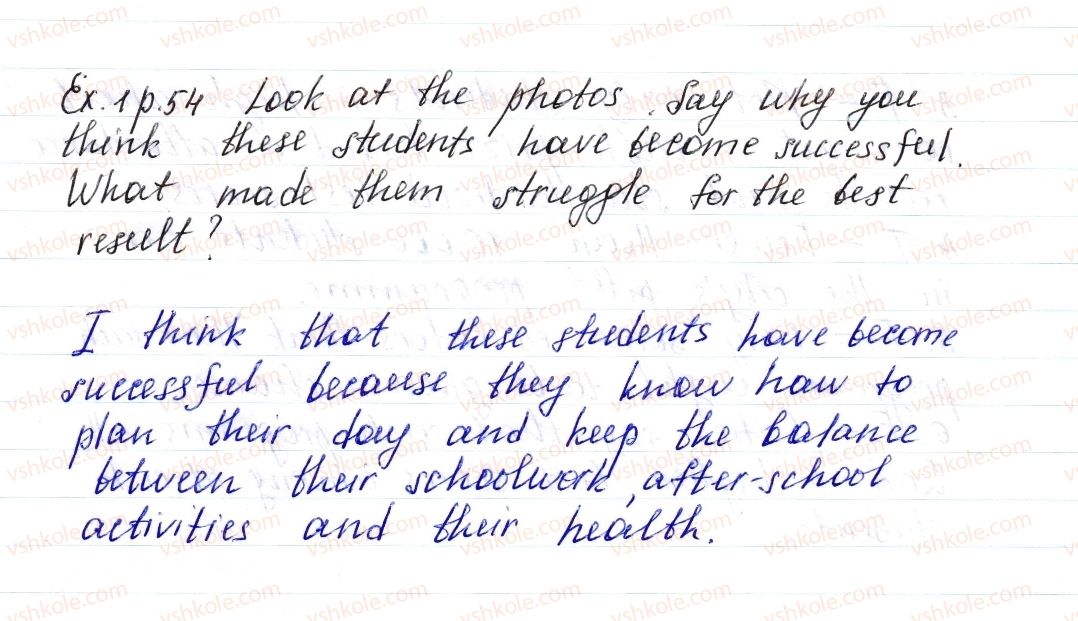 Ex. 1 p. 54 Look at the photos. Say why you
think these students have become successful.
What made them struggle for the best
result?
I think that these students have become
successful because they know how to
plan their day and keep the balance
between their schoolwork, after-school
activities and their health.